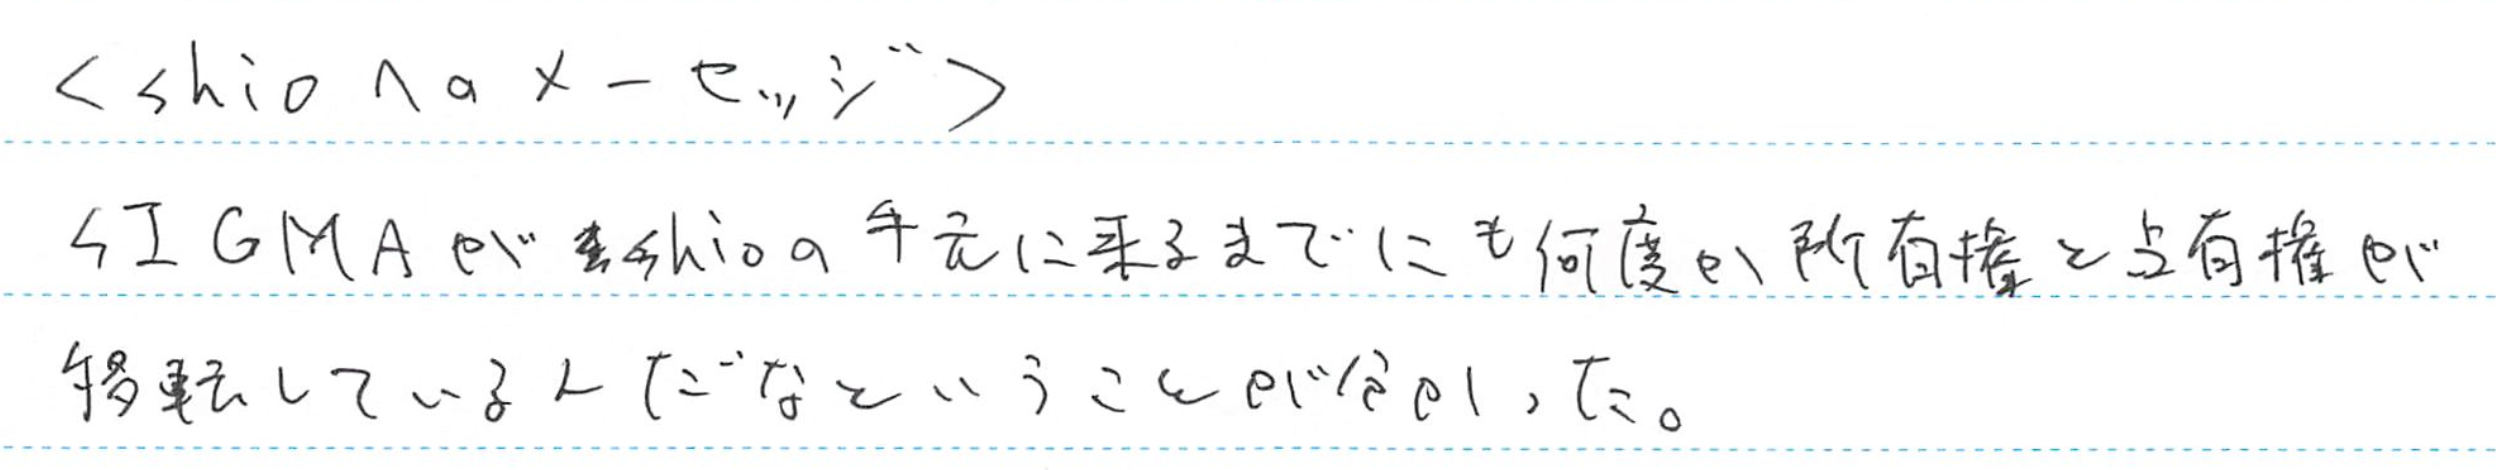 <shioへのメッセージ>
SIGMAがshioの手元に来るまでにも何度か所有権と占有権が
移転しているんだなということが分かった。